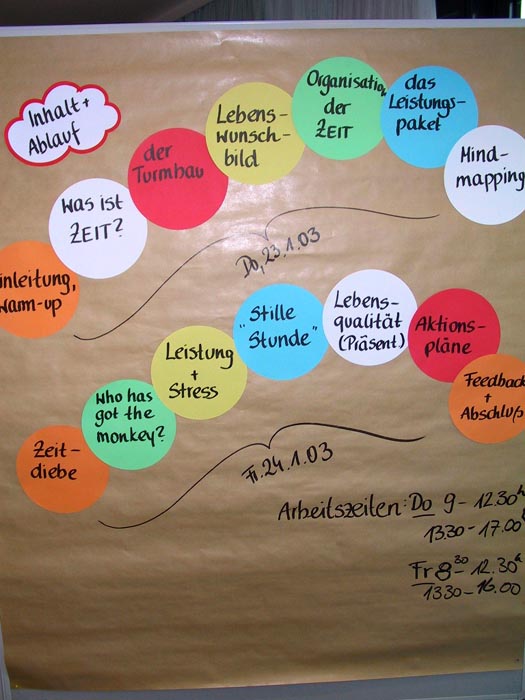 Inhalt +
Ablauf
inleitung,
warm-up
Was ist
ZEIT?
der
Turmbau
Lebens-
wunsch-
bild
Organisation
der
ZEIT
das
Leistungs-
paket
Mind-
mapping
Do, 23.1.03
Zeit-
diebe
Who has
got the
monkey?
Leistung
+
Stress
"Stille
Stunde"
Lebens-
qualität
(Präsent)
Aktions-
pläne
Feedback
+
Abschluß
Fr. 24.1.03
Arbeitszeiten: Do 9 - 12.30h
13.30 - 17.00
Fr 8 30 - 12.30
1330 - 16.00